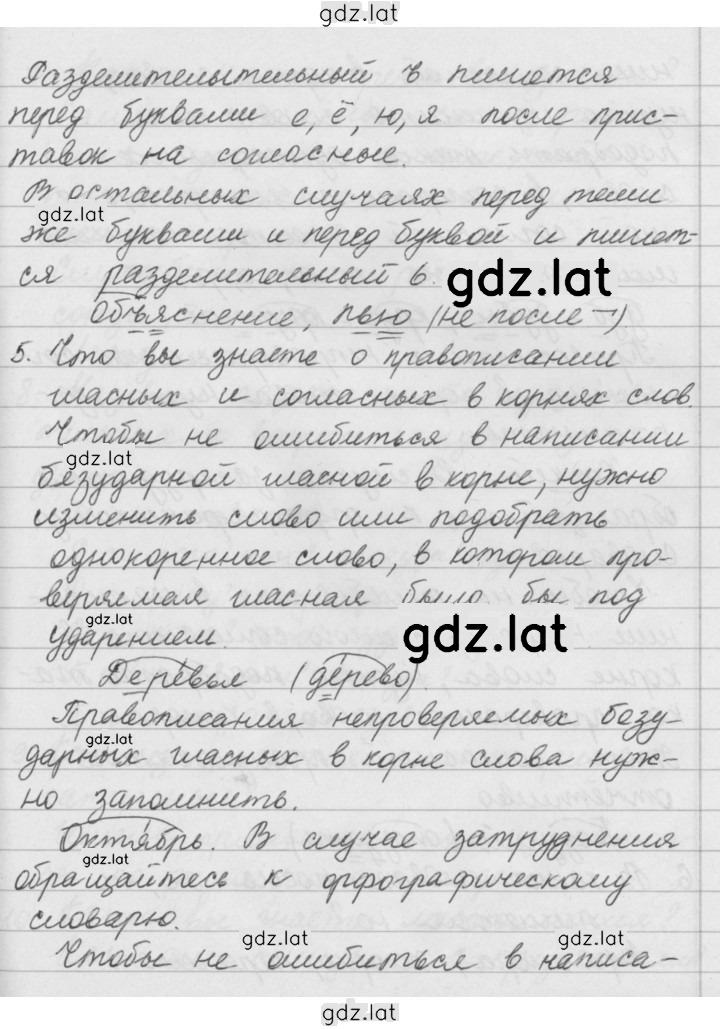 gdz.lat
Разделителытельный ъ пишется
перед буквами е, ё, ю, я после прис-
тавок на согласные.
В остальных случаях перед теми
gdz.lat
же буквами и перед буквой и пишет-
ся разделительный ь.
gdz.lat
Объяснение, пью (не после ¬)
5. Что вы знаете о правописании
гласных и согласных в корнях слов.
Чтобы не ошибиться в написании
gdz.lat
безударной гласной в корне, нужно
изменить слово или подобрать
однокоренное слово, в котором про-
веряемая гласная было бы под
gdz.lat
gdz.lat
ударением.
Деревья (дерево).
Правописания непроверяемых безу-
gdz.lat
дарных гласных в корне слова нуж-
но запомнить.
Октябрь. В случае затруднения
gdz.lat
обращайтесь к орфографическому
словарю.
gdz.lat gdz.lat
Чтобы не ошибиться в написа-
gdz.lat